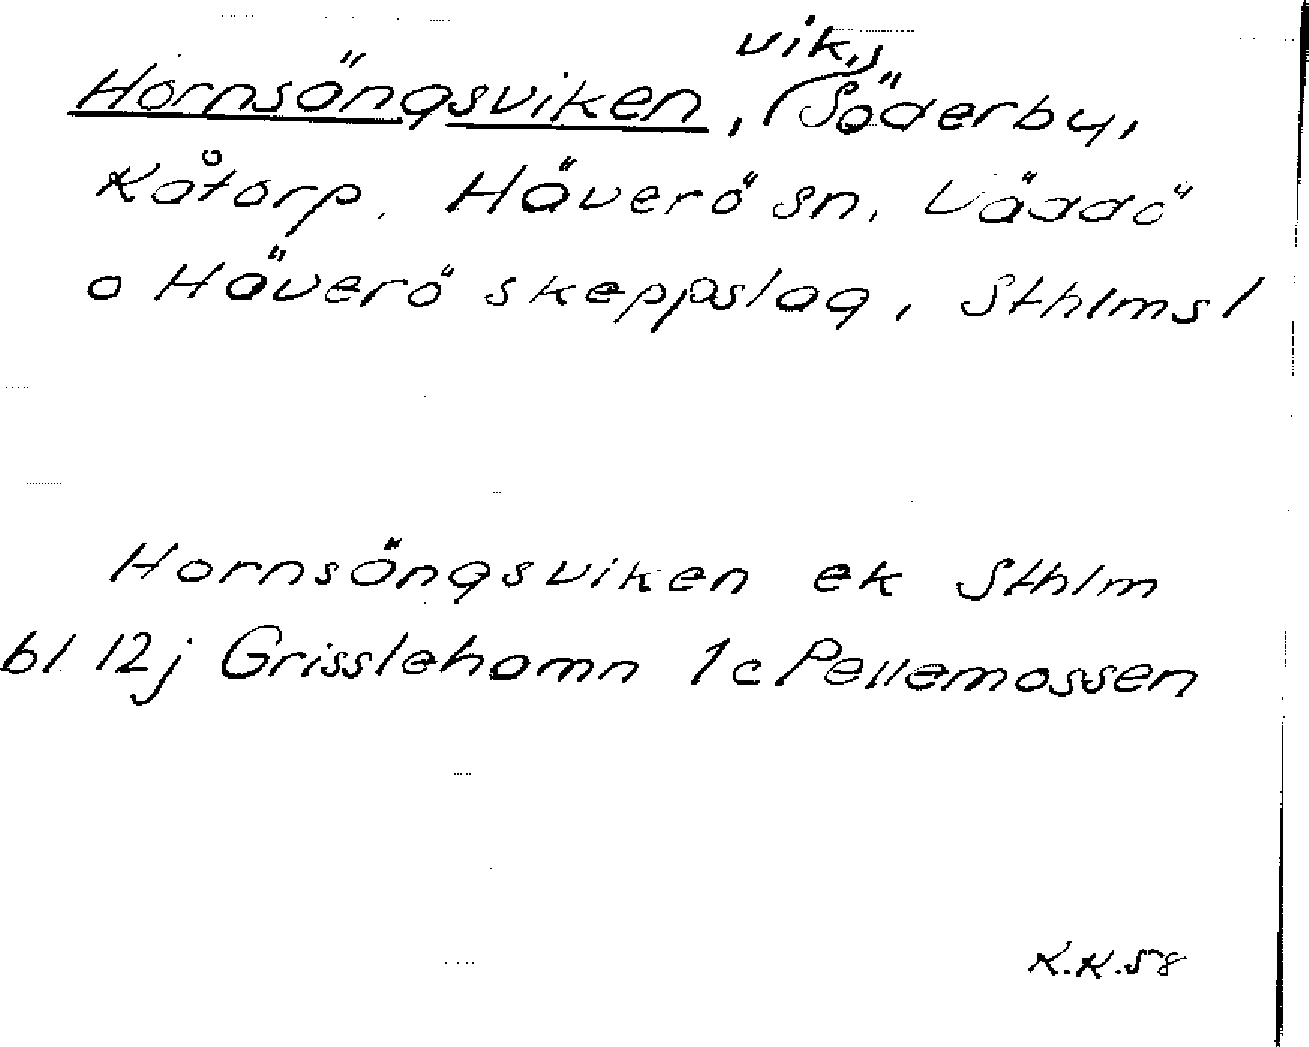 Hornsängsviken, vik, Söderby,
Kåtorp. Häverö sn, Väddö
o Häverö skeppslag, Sthlms l
Hornsängsviken ek Sthlm
bl 12j Grisslehamn 1c Pellemossen
K.K.58